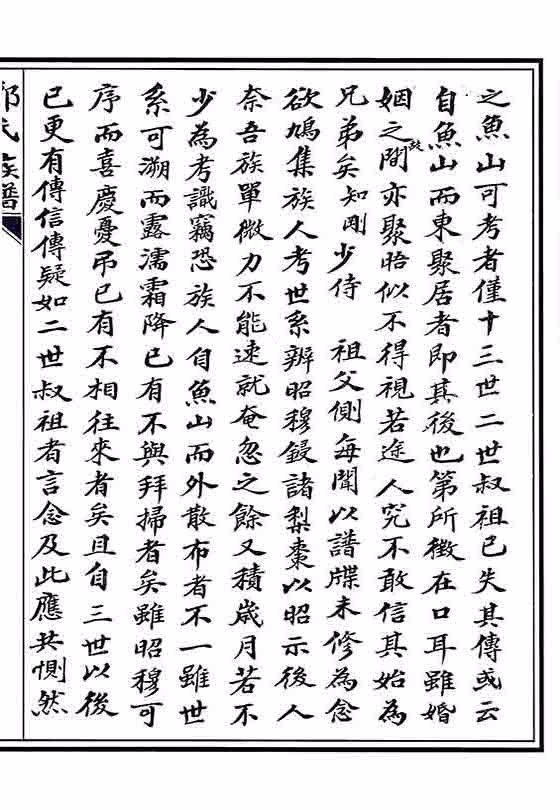 之魚山可考者僅十三世二世叔祖已失其傳或云
自魚山而東聚居者即其後也第所徵在口耳雖婚
姻之間亦聚晤似不得視若途人究不敢信其始為
兄弟矣知剛少侍 祖父側每聞以譜牒未修為念
欲鳩集族人考世系辨昭穆鋟諸梨棗以昭示後人
奈吾族單微力不能速就奄忽之餘又積歲月若不
少為考識竊恐族人自魚山而外散布者不一雖世
系可溯而露濡霜降已有不與拜掃者矣雖昭穆可
序而喜慶憂吊已有不相往來者矣且自三世以後
已更有傳信傳疑如二世叔祖者言念及此應共惻然
氏族譜